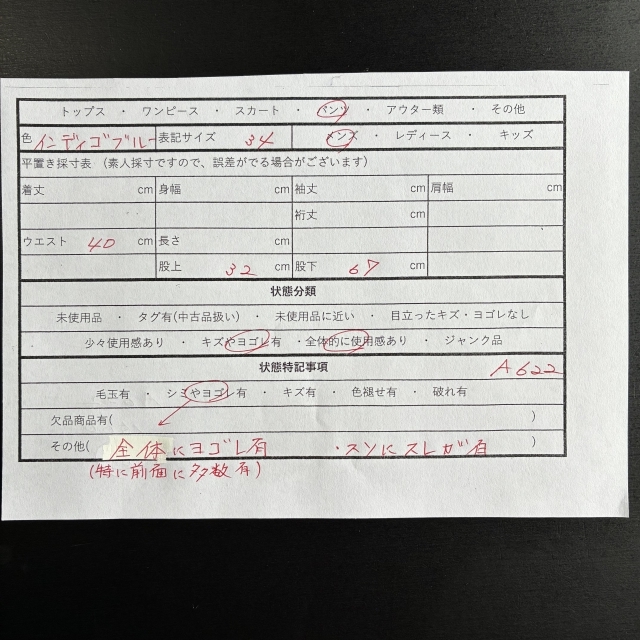 トップス ・ ワンピース ・ スカート ・ パンツ ・ アウター類 ・ その他
色 インディゴブルー 表記サイズ 34 メンズ ・ レディース ・ キッズ
平置き採寸表 (素人採寸ですので、誤差がでる場合がございます)
着丈 cm 身幅 cm 袖丈 cm 肩幅 cm
裄丈 cm
ウエスト 40 cm 長さ cm
股上 32 cm 股下 67 cm
状態分類
未使用品 ・ タグ有(中古品扱い) ・ 未使用品に近い ・ 目立ったキズ・ヨゴレなし
少々使用感あり ・ キズやヨゴレ有 ・全体的に使用感あり ・ ジャンク品
状態特記事項 A622
毛玉有 ・ シミやヨゴレ有 ・ キズ有 ・ 色褪せ有 ・ 破れ有
欠品商品有( )
その他( 全体にヨゴレ有 ・スソにスレが有 )
(特に前面に多数有)